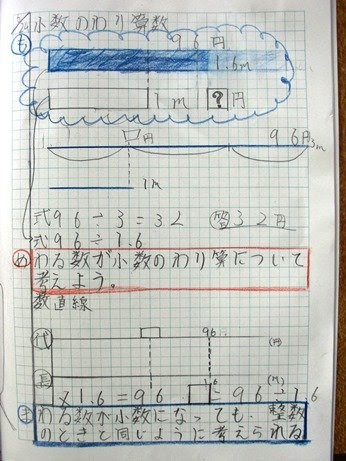 小数のわり算数
も
96円
1.6m
1m ? 円
□円 96円
3m
1m
式96÷3=32 答32円
式96÷1.6
め わる数が小数のわり算について
考えよう。
数直線
代 □ 96 (円)
長 1.6 (m)
□×1.6=96 □=96÷1.6
ま わる数が小数になっても、整数
のときと同じように考えられる